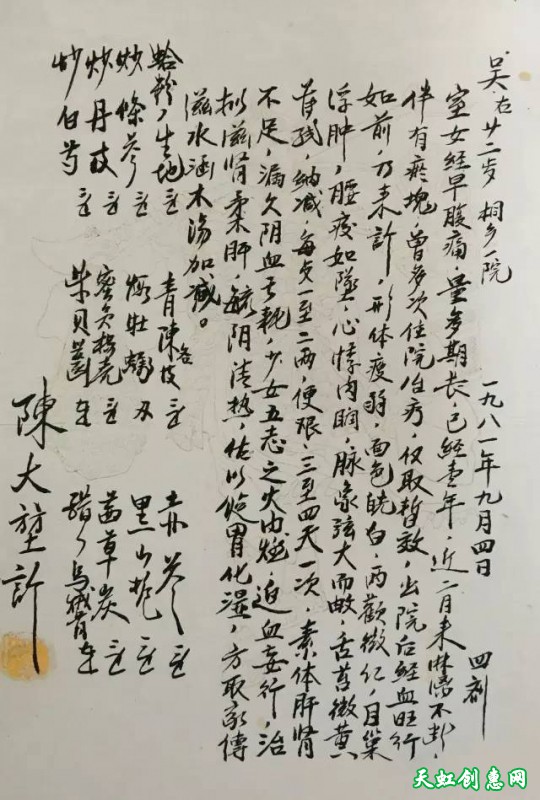 吴右 廿二岁 桐乡一院 一九八一年九月四日 四剂
室女经早腹痛,量多期长,已经壹年,近二月来淋漓不断,
伴有瘀块,曾多次住院治疗,仅取暂效,出院后经血旺行
如前,乃来诊,形体疲弱,面色㿠白,两颧微红,目窠
浮肿,腰疫如坠,心悸肉瞤,脉象弦大而
舌苔微黄
纳减,每贪一至二两,便艰,三至四天一次,素体肝肾
不足,漏久阴血亏耗,少女五志之火内炽,迫血妄行,治
拟滋肾柔肝,毓阴清热,佐以给胃化湿,方取家传
滋水涵木汤加减。
蛤粉炒生地
炒条参
炒丹皮
炒白芍
青陈皮
煅牡蛎
蜜炙椿壳
柴贝茵
玄参
黑山栀
茜草炭
醋炒乌贼骨
陳大堃診
天虹创惠网